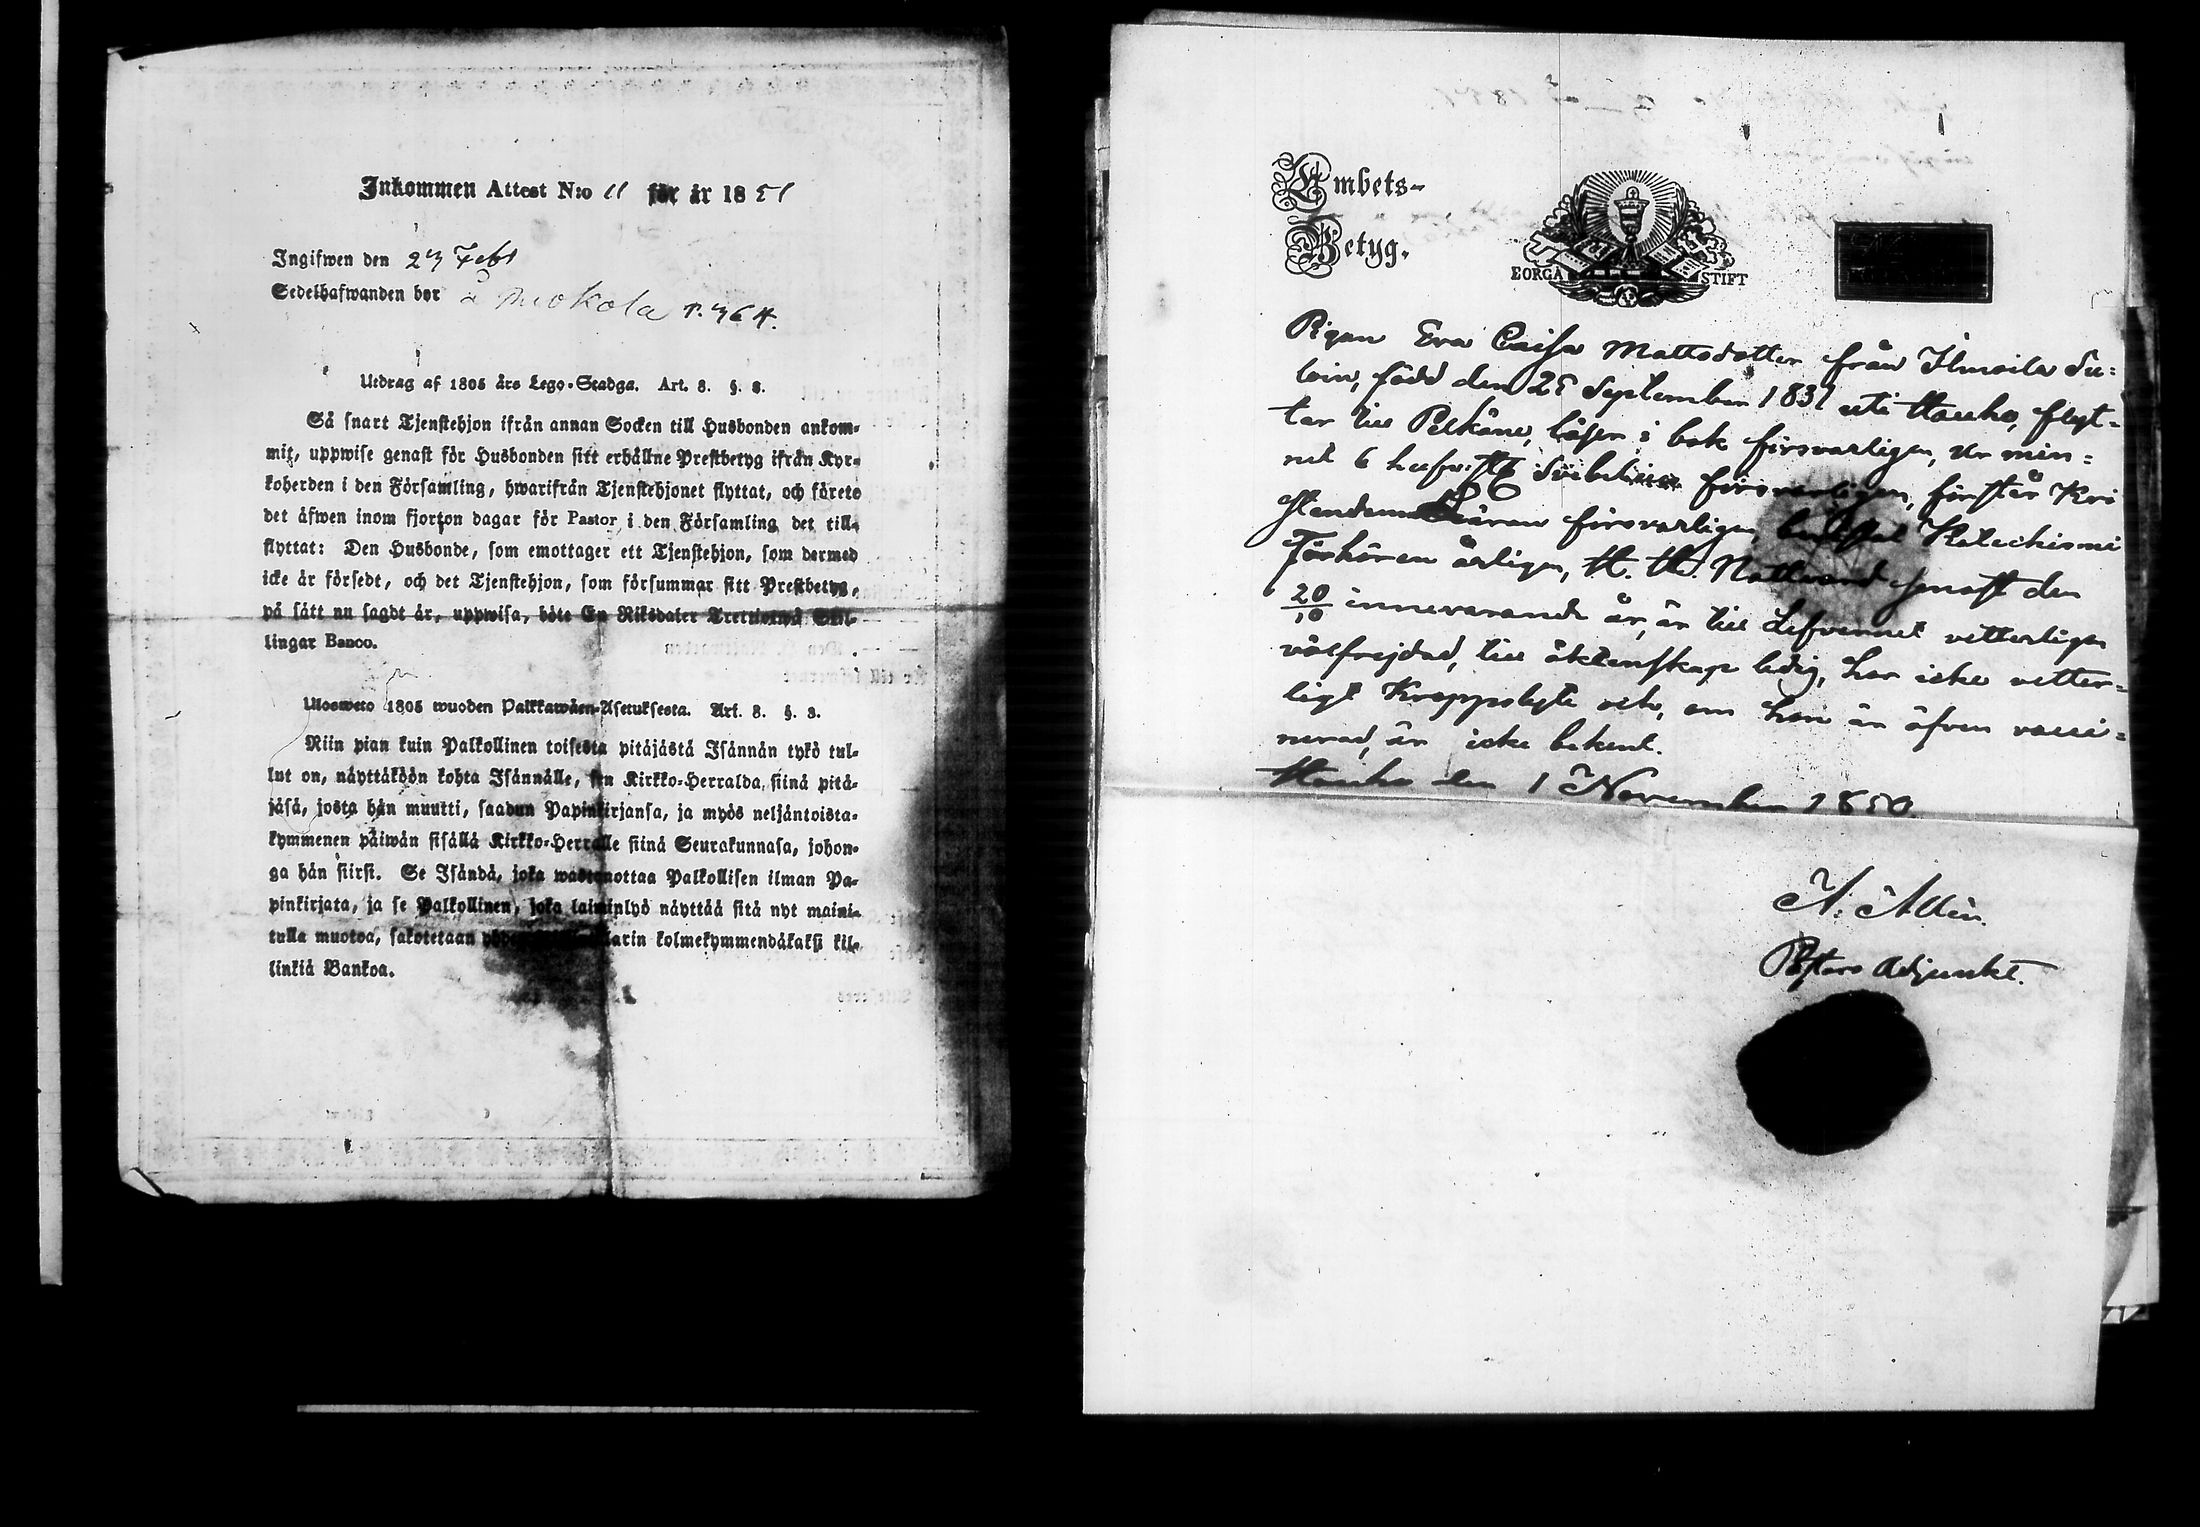 Inkommen Attest N:o 11 för år 1851
Ingifwen den 27 Febr
Sedelhafwanden bor å
Utdrag af 1805 års Lego-Stadga. Art. 8. §. 3.
Så snart Tjenstehjon ifrån annan Socken till Husbonden ankom-
mit, uppwise genast för Husbonden sitt erhållne Prestbetyg ifrån Kyr-
koherden i den Församling, hwarifrån Tjenstehjonet flyttat, och förete
det äfwen inom fjorton dagar för Pastor i den Församling det till-
flyttat: Den Husbonde, som emottager ett Tjenstehjon, som dermed
icke är försedt, och det Tjenstehjon, som försummar sitt Prestbetyg,
på sätt nu sagdt är, uppwisa, böte En Riksdaler Trettiotwå Skil-
lingar Banco.
Ulosweto 1805 wuoden Palkkawäen-Asetuksesta. Art. 8. §. 3.
Niin pian kuin Palkollinen toisesta pitäjästä Isännän tykö tul-
lut on, näyttäköön kohta Isännälle, sen Kirkko-Herralda, siinä pitä-
jäsä, josta hän muutti, saadun Papinkirjansa, ja myös neljäntoista-
kymmenen päiwän sisällä Kirkko-Herralle siinä Seurakunnasa, johon-
ga hän siirsi. Se Isändä, joka wastanottaa Palkollisen ilman Pa-
pinkirjata, ja se Palkollinen, joka laiminlyö näyttää sitä nyt maini-
tulla muotoa, sakotetaan kolmekymmendäkaksi kil-
linkiä Bankoa.
Embets-
Betyg.
BORGÅ STIFT
Pigan Eva Caisa Mattsdotter från Ilmoila Su=
loin, född den 25 September 1831 uti Hauho, flyt=
tar till Pelkäne, läser i bok försvarligen, ur min=
net 6 hufv: St. Svebelius försvarligen, förstår Kri
stendoms Läran försvarligen, bevistat Katechismi
Förhören årligen, H. H. Nattvard senast den
20/10 innevarande år, är till Lefvernet vitterligen
välfrejdad, till äktenskap ledig, har icke vetter=
ligt Kroppslyte och, om hon är äfven vacci=
nerad, är icke bekant.
Hauho den 1 November 1850.
Pastors Adjunkt.